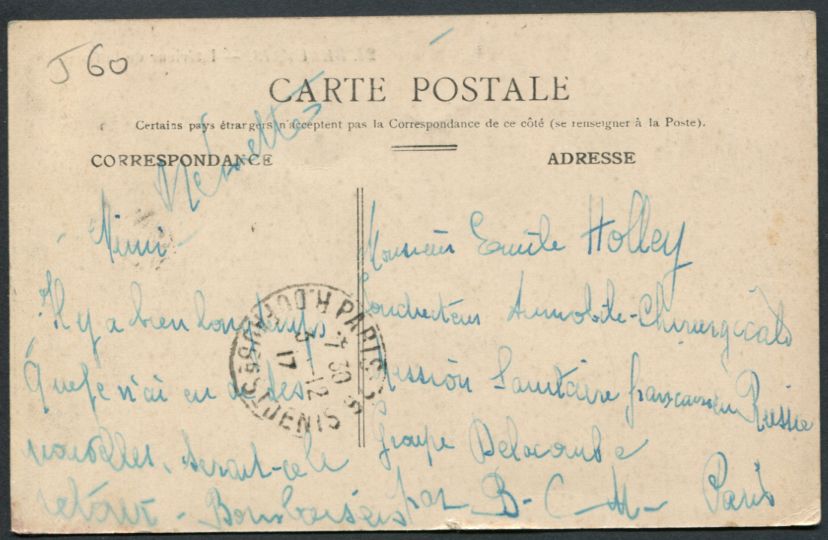 J 60
CARTE POSTALE
Certains pays étrangers n'acceptent pas la Correspondance de ce côté (se renseigner à la Poste).
CORRESPONDANCE
ADRESSE
Mimi
Il y a bien longtemps
Que je n'ai eu de tes
nouvelles. Serait-ce le
retour - Bons baisers
Monsieur Emile Holley
Conducteur Automobile-Chirurgicale
Mission Sanitaire française en Russie
Groupe Delacombe
par B-C-M- Paris
PARIS
7 30
3 - 12
17
R. DU FAUBG ST DENIS